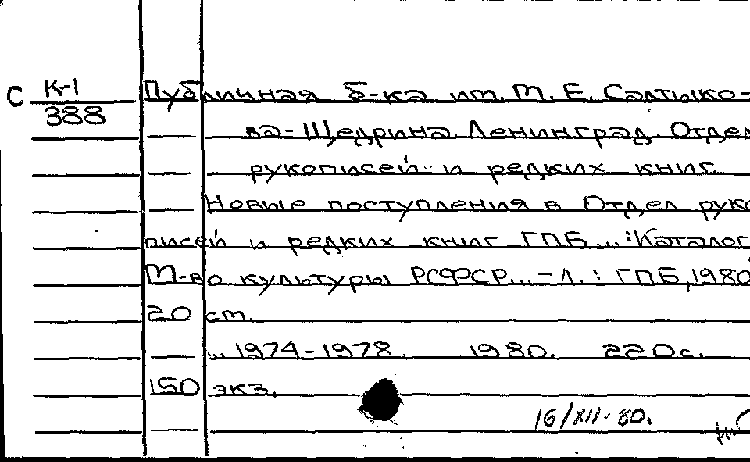 С К-1
388
Публичная б-ка им. М. Е. Салтыко-
ва-Щедрина. Ленинград. Отдел
рукописей и редких книг.
Новые поступления в Отдел руко
писей и редких книг ГПБ...: Каталог
М-во культуры РСФСР... - Л.: ГПБ, 1980
20 см.
... 1974-1978. 1980. 220 с.
150 экз.
16/XII-80.